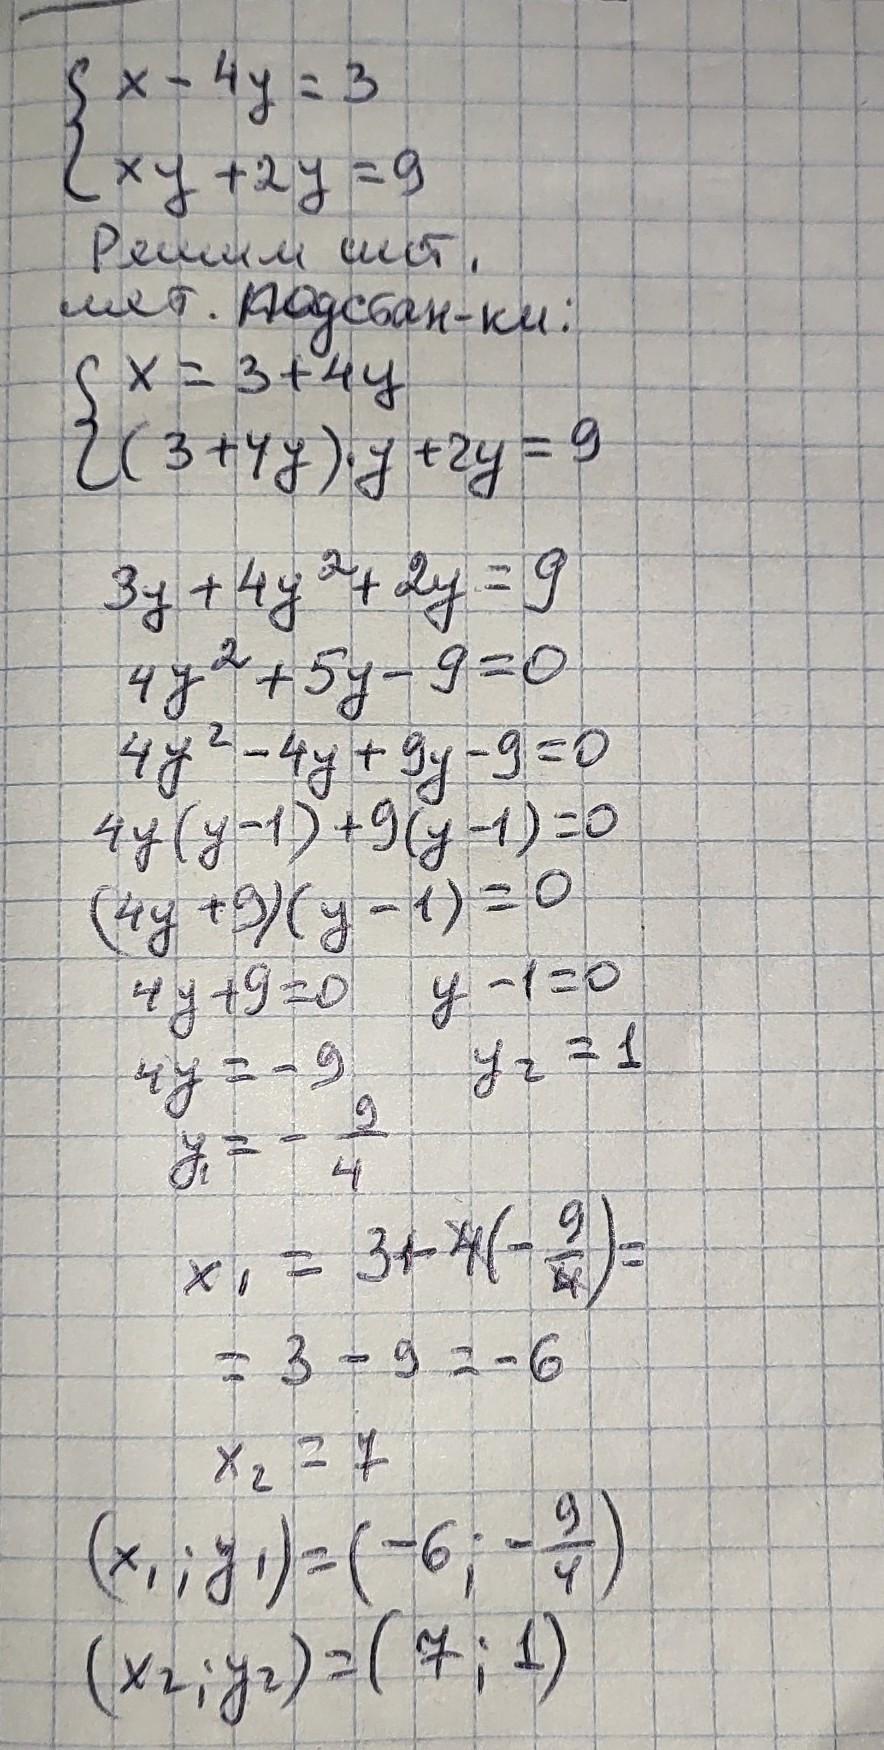 { x - 4y = 3
xy + 2y = 9
Решим сист.
мет. подстан-ки:
{ x = 3 + 4y
(3 + 4y)·y + 2y = 9
3y + 4y² + 2y = 9
4y² + 5y - 9 = 0
4y² - 4y + 9y - 9 = 0
4y(y - 1) + 9(y - 1) = 0
(4y + 9)(y - 1) = 0
4y + 9 = 0 y - 1 = 0
4y = - 9 y₂ = 1
y₁ = - 9/4
x₁ = 3 + 4(- 9/4) =
= 3 - 9 = - 6
x₂ = 7
(x₁; y₁) = (-6; - 9/4)
(x₂; y₂) = (7; 1)